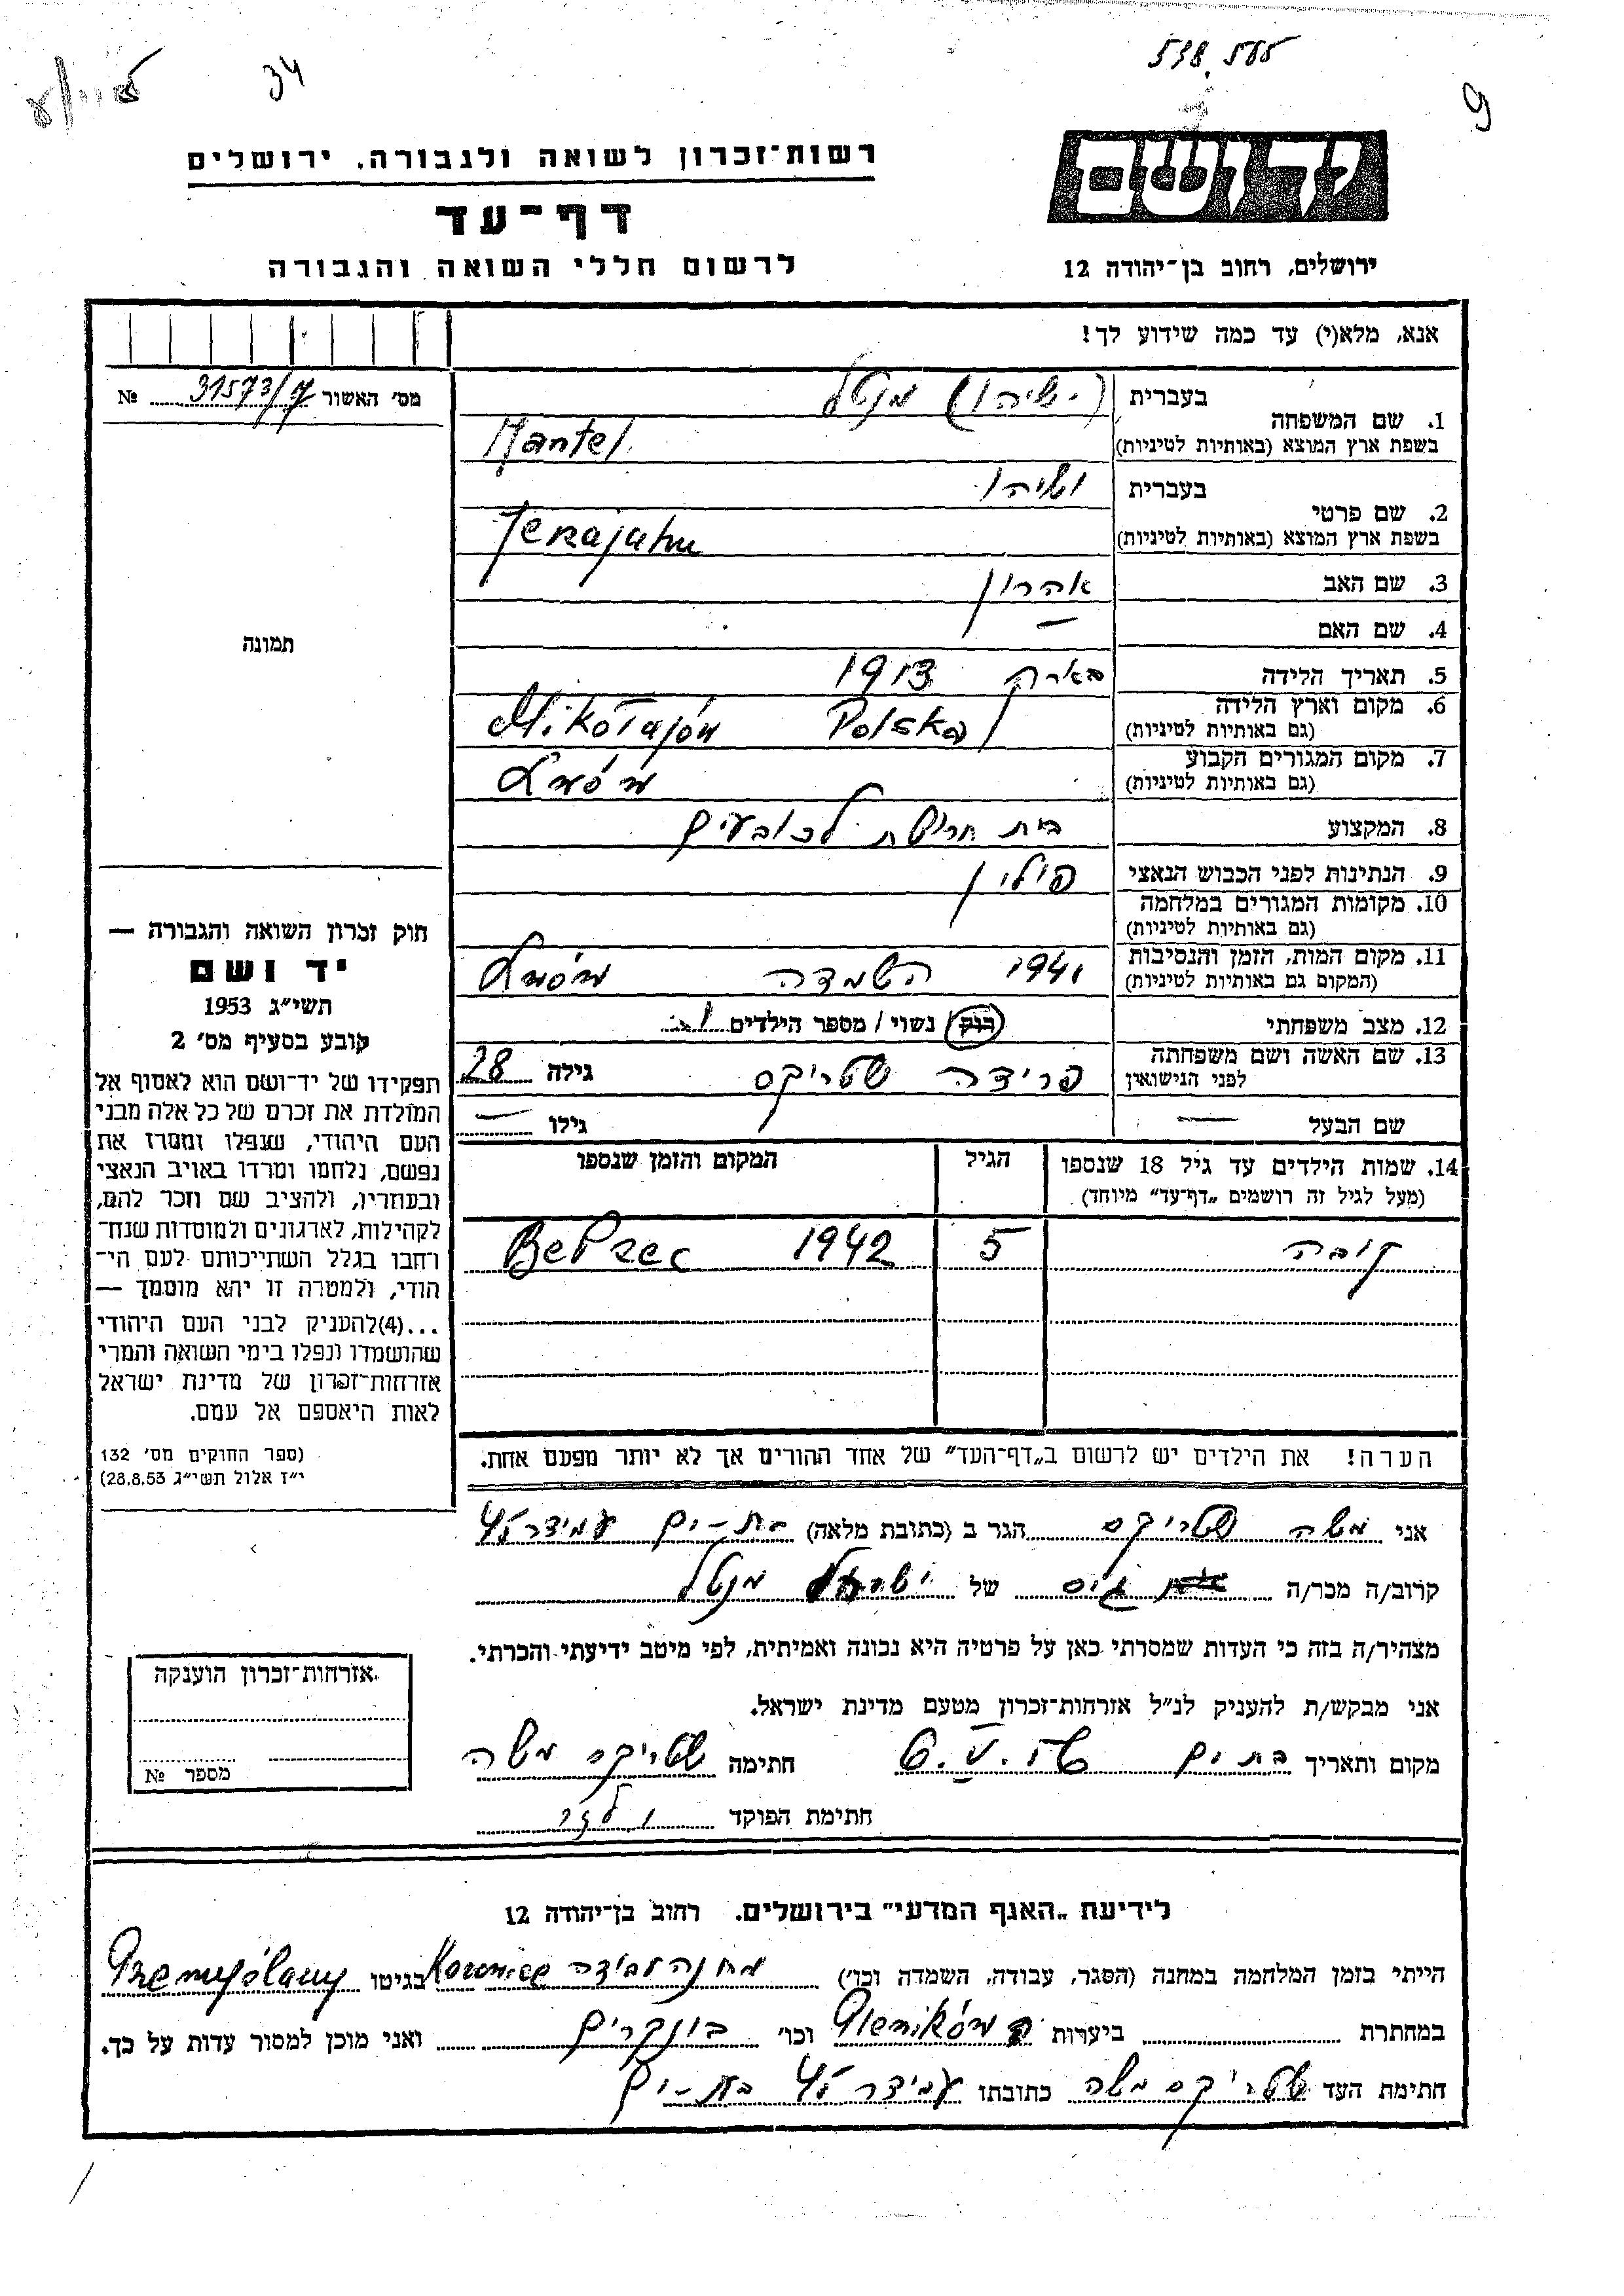 34
538.565
9
רשות־זכרון לשואה ולגבורה, ירושלים
דף־עד
לרשום חללי השואה והגבורה
יד ושם
ירושלים, רחוב בן־יהודה 12
אנא, מלא(י) עד כמה שידוע לך!
מס' האשור 31573/ № 
1. שם המשפחה
בעברית מנטל
בשפת ארץ המוצא (באותיות לטיניות) Mantel
2. שם פרטי
בעברית
בשפת ארץ המוצא (באותיות לטיניות)
3. שם האב אהרון
4. שם האם —
5. תאריך הלידה 1913
6. מקום וארץ הלידה
(גם באותיות לטיניות) Mikołajów Polska
7. מקום המגורים הקבוע
(גם באותיות לטיניות) Lwów
8. המקצוע בית חרושת לכובעים
9. הנתינות לפני הכבוש הנאצי פולין
10. מקומות המגורים במלחמה
(גם באותיות לטיניות)
11. מקום המות, הזמן והנסיבות
(המקום גם באותיות לטיניות) 1941 השמדה Lwów
12. מצב משפחתי רוק / נשוי / מספר הילדים 1
13. שם האשה ושם משפחתה
לפני הנישואין פרידה שטריקס גילה 28
שם הבעל — גילו —
14. שמות הילדים עד גיל 18 שנספו
(מעל לגיל זה רושמים „דף־עד" מיוחד)
הגיל
המקום והזמן שנספו
קובה 5 1942 Bełzec
תמונה
חוק זכרון השואה והגבורה —
יד ושם
תשי"ג 1953
קובע בסעיף מס' 2
תפקידו של יד־ושם הוא לאסוף אל
המולדת את זכרם של כל אלה מבני
העם היהודי, שנפלו ומסרו את
נפשם, נלחמו ומרדו באויב הנאצי
ובעוזריו, ולהציב שם וזכר להם,
לקהילות, לארגונים ולמוסדות שנח־
רחבו בגלל השתייכותם לעם הי־
הודי, ולמטרה זו יהא מוסמך —
...(4)להעניק לבני העם היהודי
שהושמדו ונפלו בימי השואה והמרי
אזרחות־זכרון של מדינת ישראל
לאות היאספם אל עמם.
(ספר החוקים מס' 132
י"ז אלול תשי"ג 28.8.53)
הערה! את הילדים יש לרשום ב„דף־העד" של אחד ההורים אך לא יותר מפעם אחת.
אני משה שטריקס הגר ב (כתובת מלאה) בת-ים עמידר
קרוב/ה מכר/ה גיס של מנטל
מצהיר/ה בזה כי העדות שמסרתי כאן על פרטיה היא נכונה ואמיתית, לפי מיטב ידיעתי והכרתי.
אני מבקש/ת להעניק לנ"ל אזרחות־זכרון מטעם מדינת ישראל.
מקום ותאריך בת ים חתימה שטריקס משה
חתימת הפוקד
אזרחות־זכרון הוענקה
מספר №
לידיעת „האגף המדעי" בירושלים. רחוב בן־יהודה 12
הייתי בזמן המלחמה במחנה (הסגר, עבודה, השמדה וכו') מחנה עבודה בגיטו
במחתרת ביערות וכו' בונקרים ואני מוכן למסור עדות על כך.
חתימת העד שטריקס משה כתובתו עמידר בת-ים